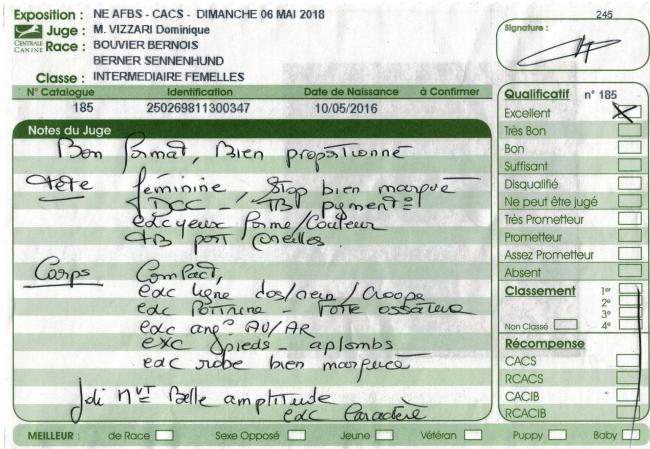 Exposition : NE AFBS - CACS - DIMANCHE 06 MAI 2018
246
Juge : M. VIZZARI Dominique
Signature :
CENTRALE CANINE
Race : BOUVIER BERNOIS
BERNER SENNENHUND
Classe : INTERMEDIAIRE FEMELLES
N° Catalogue Identification Date de Naissance à Confirmer
185 250269811300347 10/05/2016
Notes du Juge
Bon format, Bien proportionné
tête féminine, Stop bien marqué
DCC - TB pigment
exc yeux forme/Couleur
TB port oreilles.
Corps Compact,
exc ligne dos/rein/Croupe
exc Poitrine - forte ossature
exc ang° AV/AR
exc pieds - aplombs
exc robe bien marquée
Joli mvt Belle amplitude
exc Caractère
Qualificatif n° 185
Excellent
Très Bon
Bon
Suffisant
Disqualifié
Ne peut être jugé
Très Prometteur
Prometteur
Assez Prometteur
Absent
Classement 1er
2e
3e
Non Classé 4e
Récompense
CACS
RCACS
CACIB
RCACIB
MEILLEUR : de Race Sexe Opposé Jeune Vétéran Puppy Baby